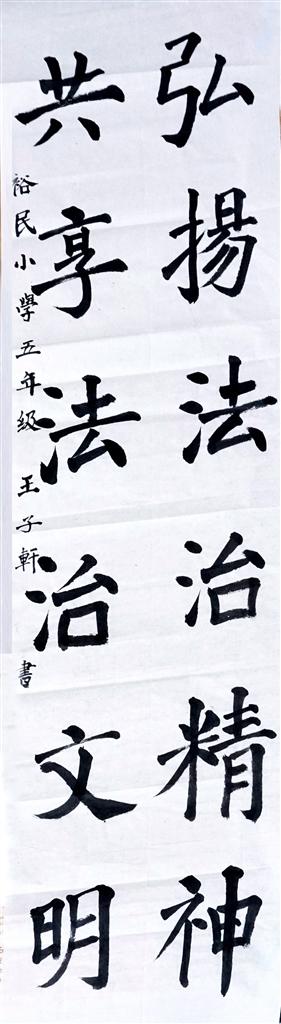 弘揚法治精神
共享法治文明
裕民小學五年级 王子軒 書